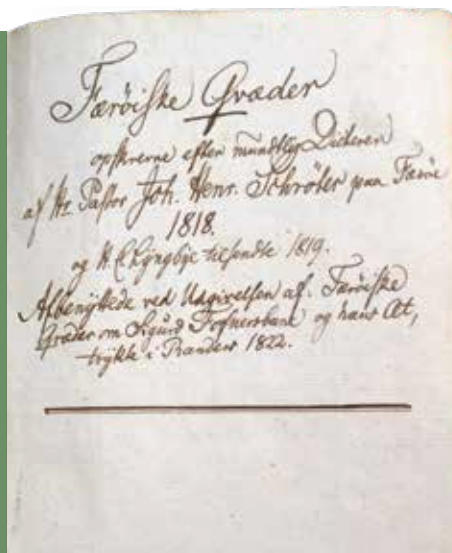 Færöiske Qvæder
opskrevne efter mundtlig Dicteren
af Hr. Pastor Joh. Henr. Schrøter paa Færöe
1818.
og H. C. Lyngbye tilsendte 1819.
Afbenyttede ved Udgivelsen af. Færöiske
Qvæder om Sigurd Fofnersbane og hans Æt,
trykte i Randers 1822.